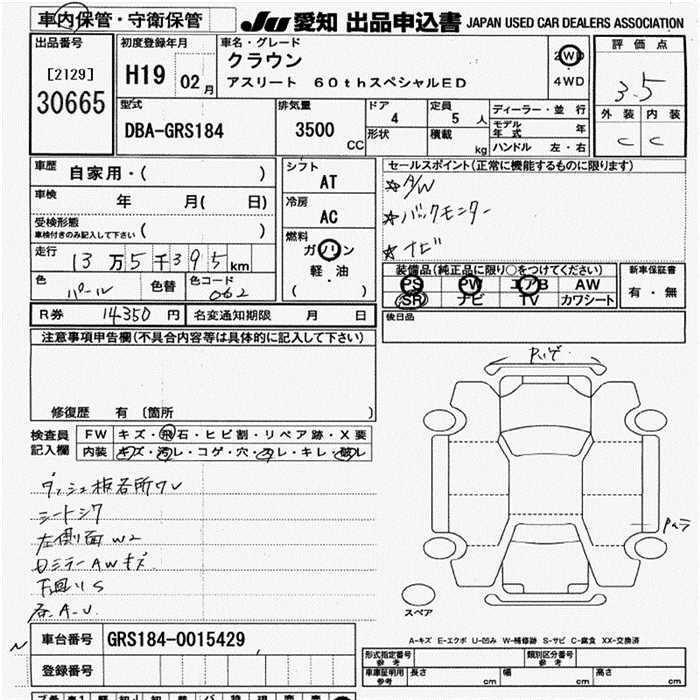 車内保管・守衛保管
JU 愛知 出品申込書 JAPAN USED CAR DEALERS ASSOCIATION
出品番号
[2129]
30665
初度登録年月
H19 02月
車名・グレード
クラウン
アスリート 60thスペシャルED
2WD
4WD
評価点
3.5
外装 内装
C C
型式
DBA-GRS184
排気量
3500
CC
ドア
4
形状
定員
5人
積載
kg
ディーラー・並行
モデル年式 年
ハンドル 左・右
車歴
自家用・( )
車検
年 月( 日)
受検形態
車検付きのみ記入して下さい ( )
走行
13万5千395km
色
パール
色替
色コード
062
シフト
AT
冷房
AC
燃料
ガソリン
軽油
( ・ )
セールスポイント(正常に機能するものに限ります)
☆A/W
☆バックモニター
☆ナビ
装備品(純正品に限り○をつけてください)
PS PW エアB AW
SR ナビ TV カワシート
新車保証書
有・無
R券 14350円
名変通知期限 月 日
後日品
注意事項申告欄(不具合内容等は具体的に記入して下さい)
修復歴 有〔箇所 〕
検査員
記入欄
FW キズ・飛石・ヒビ割・リペア跡・X要
内装 キズ・汚レ・コゲ・穴・スレ・キレ・破レ
シートシワ
左側面W2
ドミラーAWキズ
下回りS
各A.U
スペア
A-キズ E-エクボ U-凹み W-補修跡 S-サビ C-腐食 XX-交換済
車台番号 GRS184-0015429
登録番号
形式指定番号
参考
類別区分番号
参考
車庫証明用
参考
長さ cm
幅 cm
高さ cm